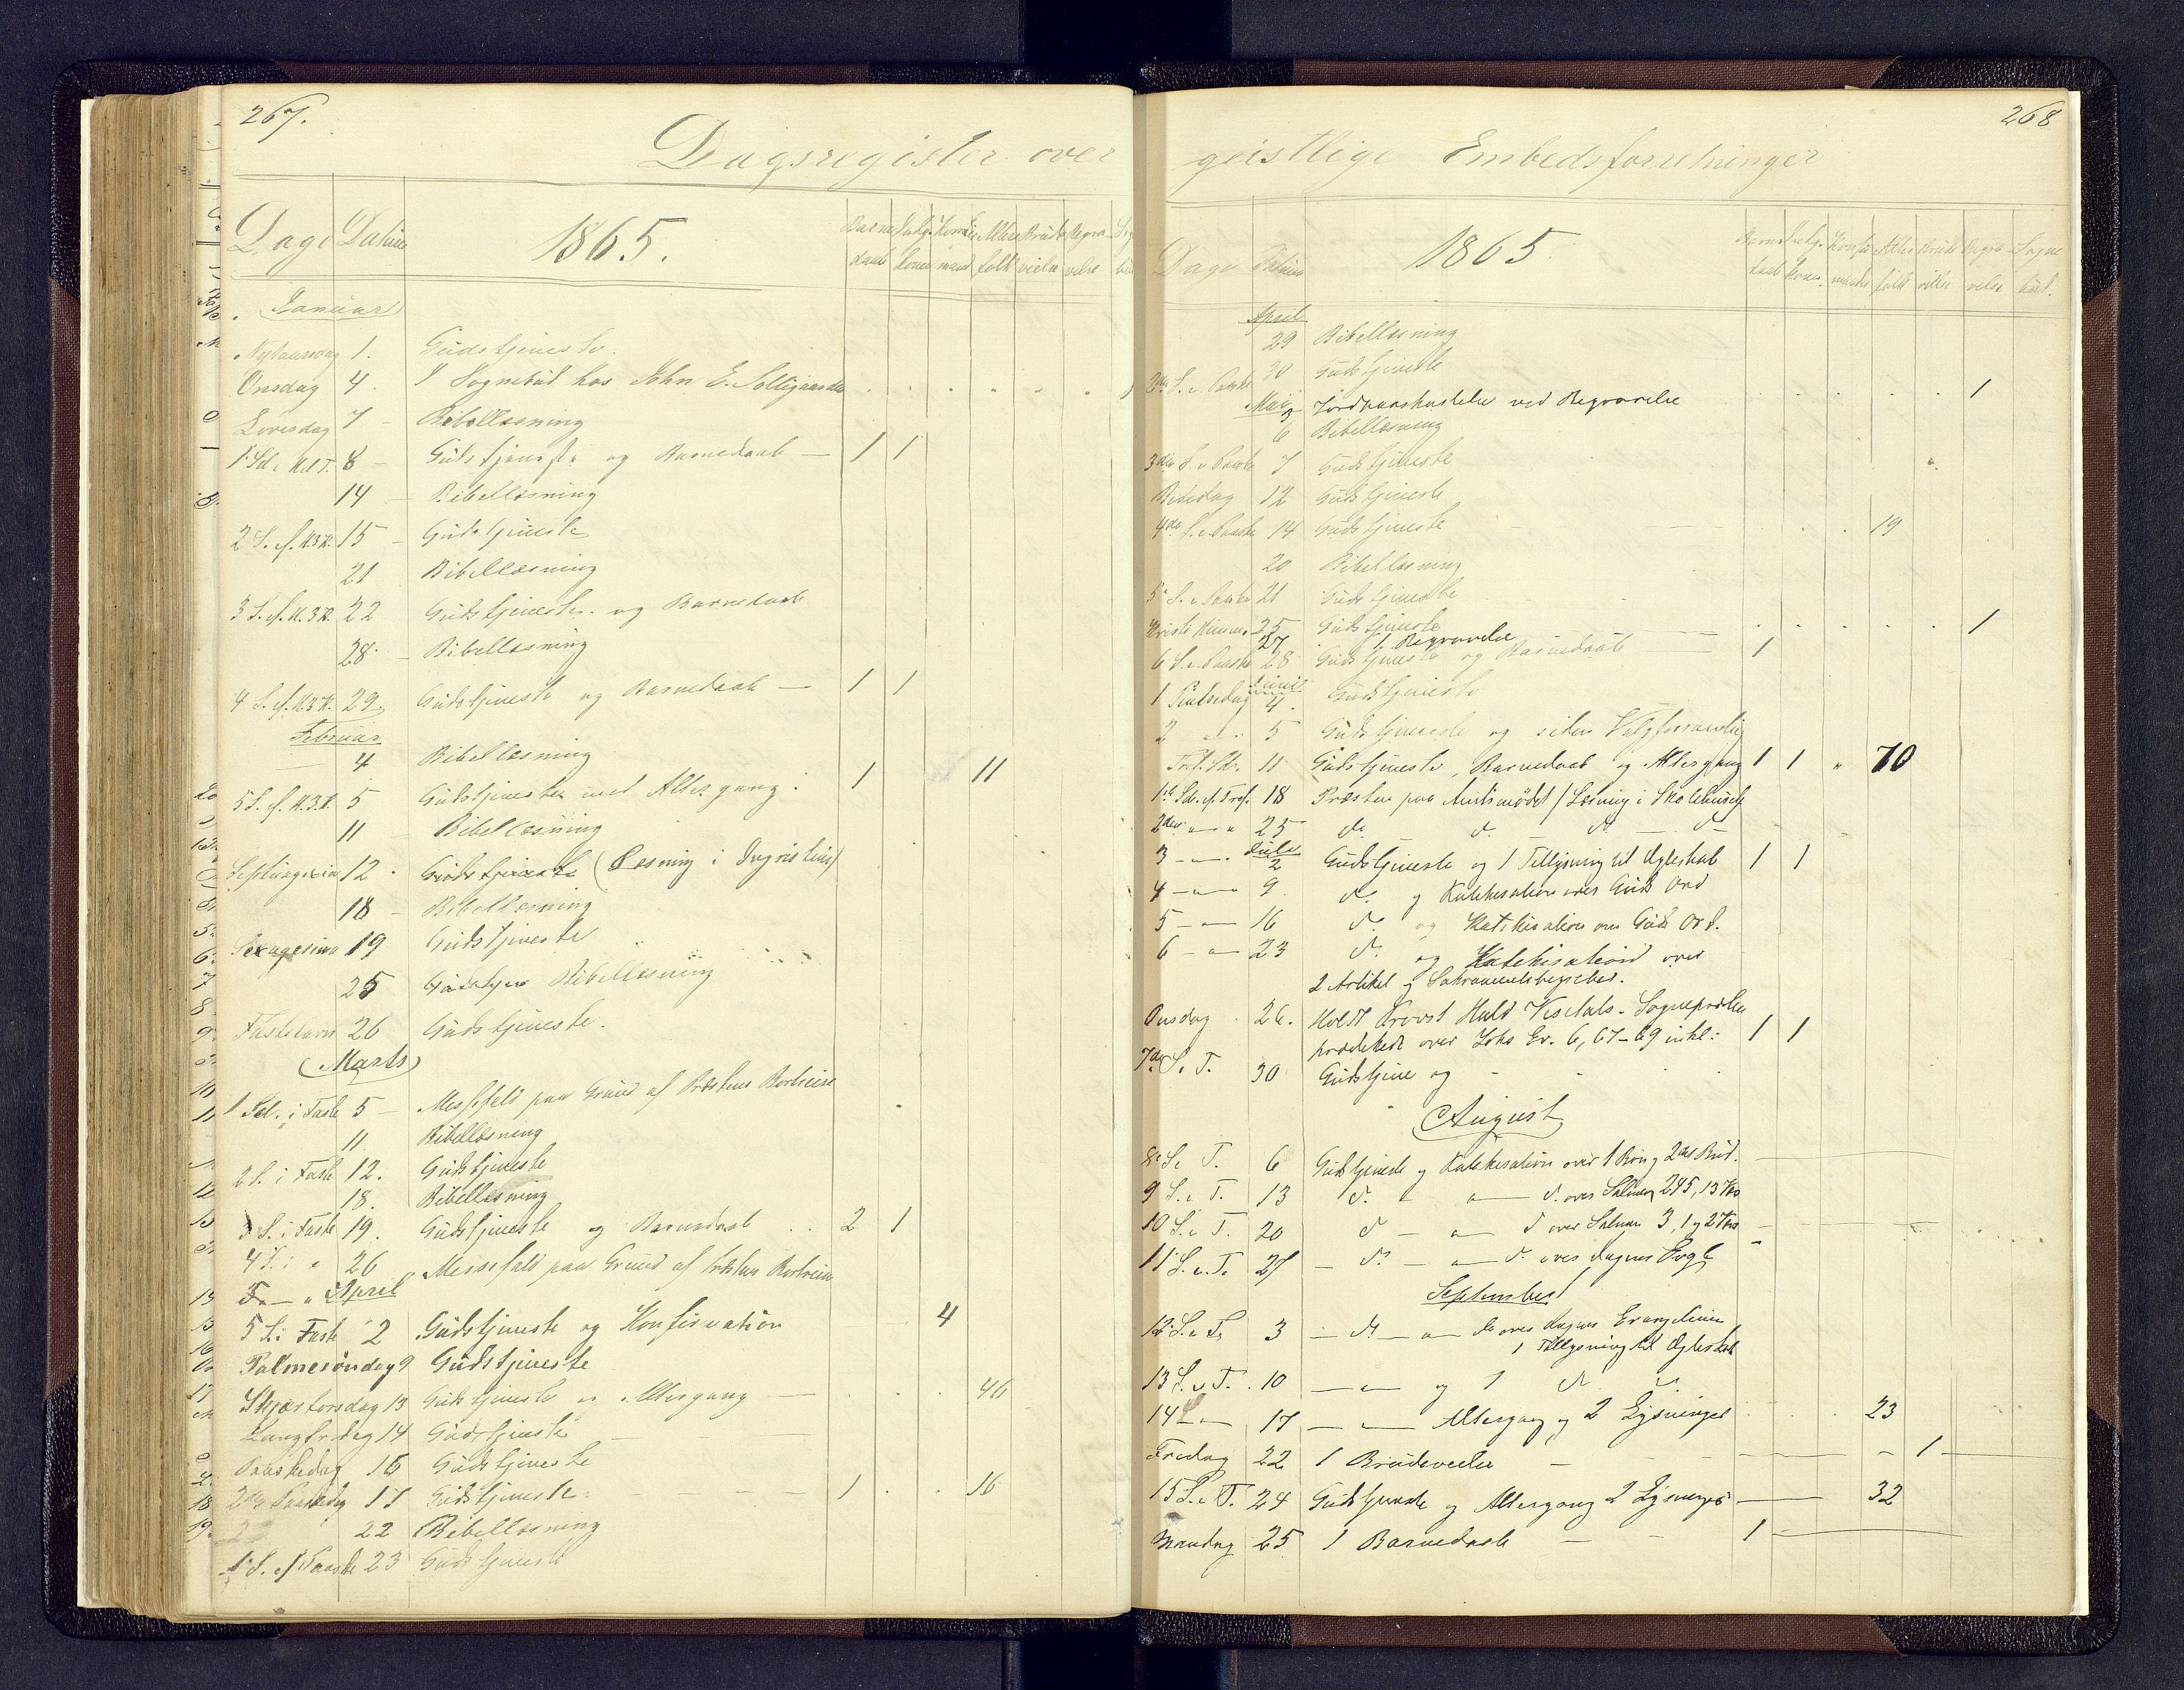 267.
Dagsregister over
Dage Datum 1865. Barne daab Indg. koner Konfir mand Alter folk Brude vielse Begra velse
Januar
Nytaarsdag 1. Gudstjeneste.
Onsdag 4. I Sognebud hos John E.
Loverdag 7 - Bibellæsning
8 - Gudstjeneste og Barnedaab — 1 1
14 - Bibellæsning
2 S. ef. H.3K. 15 - Gudstjeneste
21 Bibellæsning
3 S. ef. H.3K. 22 Gudstjeneste og Barnedaab
28. - Bibellæsning
4 S. ef. H.3K. 29. Gudstjeneste og Barnedaab — 1 1
Februar
4 Bibellæsning
5 S. ef. H.3K. 5 Gudstjeneste med Altergang. 1 11
11 - Bibellæsning
12 . Gudstjeneste (Læsning i
18 - Bibellæsning
Sexagesima 19 Gudstjeneste
25 Bibellæsning
Fastelavn 26 Gudstjeneste.
Marts
1 Sd. i Faste 5 - Messefald paa Grund af Præstens Bortreise
11. Bibellæsning
2 S. i Faste 12. Gudstjeneste
18. Bibellæsning
3 S. i Faste 19. Gudstjeneste og Barnedaab .. 2 1
4 S. i " 26 Messefald paa Grund af Præstens Bortreise
April
5 S. i Faste 2 Gudstjeneste og Konfirmation 4
Palmesöndag 9 Gudstjeneste
Skjærtorsdag 13 Gudstjeneste og Altergang — 46
Langfredag 14 Gudstjeneste
Paaskedag 16 Gudstjeneste
2den Paaskedag 17 Gudstjeneste 1 16
22 Bibellæsning
1 S. ef Paaske 23 Gudstjeneste
268
geistlige Embedsforretninger
Dage Datum 1865. Barne daab Indg. koner. Konfir mander Alter folk Brude vielse Begra velse Sogne bud.
April
29 Bibellæsning
2den S. e. Paaske 30 Gudstjeneste
Mai
3 Jordpaakastelse ved Begravelse 1
6 Bibellæsning
3die S. e. Paaske 7 Gudstjeneste
Bededag 12 Gudstjeneste
4de S. e. Paaske 14 Gudstjeneste 19
20 Bibellæsning
5 S. e. Paaske 21 Gudstjeneste
Kristi Himm. 25 Gudstjeneste
27 1 Begravelse 1
6 S. e. Paaske 28 Gudstjeneste og Barnedaab — 1
Juni
1 Pintsedag 4. Gudstjeneste
2 " 5 Gudstjeneste og siden Valgforsamling
Tref. Sdr. 11 Gudstjeneste, Barnedaab og Altergang 1 1 " 70
1ste Sdr. ef. Tref. 18 Præsten paa Amtsmødet / Læsning i Skolehuset
2den " " 25 do. do. do. do.
Juli
3 — " — 2 Gudstjeneste og 1 Tillysning til Ægteskab 1 1
4 — " — 9 do. og Katekisation over Guds Ord
5 — " — 16 do. og Katekisation over Guds Ord.
6 — " — 23 do. og Katekisation over
2 Artikel og Sakramentsbegreber.
Onsdag . 26. Holdt Provst Hald Visitats. Sognepræsten
prædikede over Joh. Ev. 6, 67-69 inkl: 1 1
7de S. e. T. 30 Gudstjene og
August
8 S. e. T. 6 Gudstjeneste og Katekisation over 1 Bøn og 2det Bud.
9 S. e. T. 13 do. " — do. over Salmen 245, 13 Vers
10 S. e. T. 20 do — " — do over Salmen 3, 1 og 2 Vers
11 S. e. T. 27 — do. — " — do. over Dagens Evgl.
September
12 S. e. T. 3 — do. — " — do over Dagens Evangelium
1 Tillysning til Ægteskab
13 S. e. T. . 10 — " — og 1 do. do.
14 — " — 17 — " — Altergang og 2 Lysninger 23
Fredag 22 1 Brudevielse — 1
15 S. e. T. 24 Gudstjeneste og Altergang 2 Lysninger — 32
Mandag 25 1 Barnedaab — 1